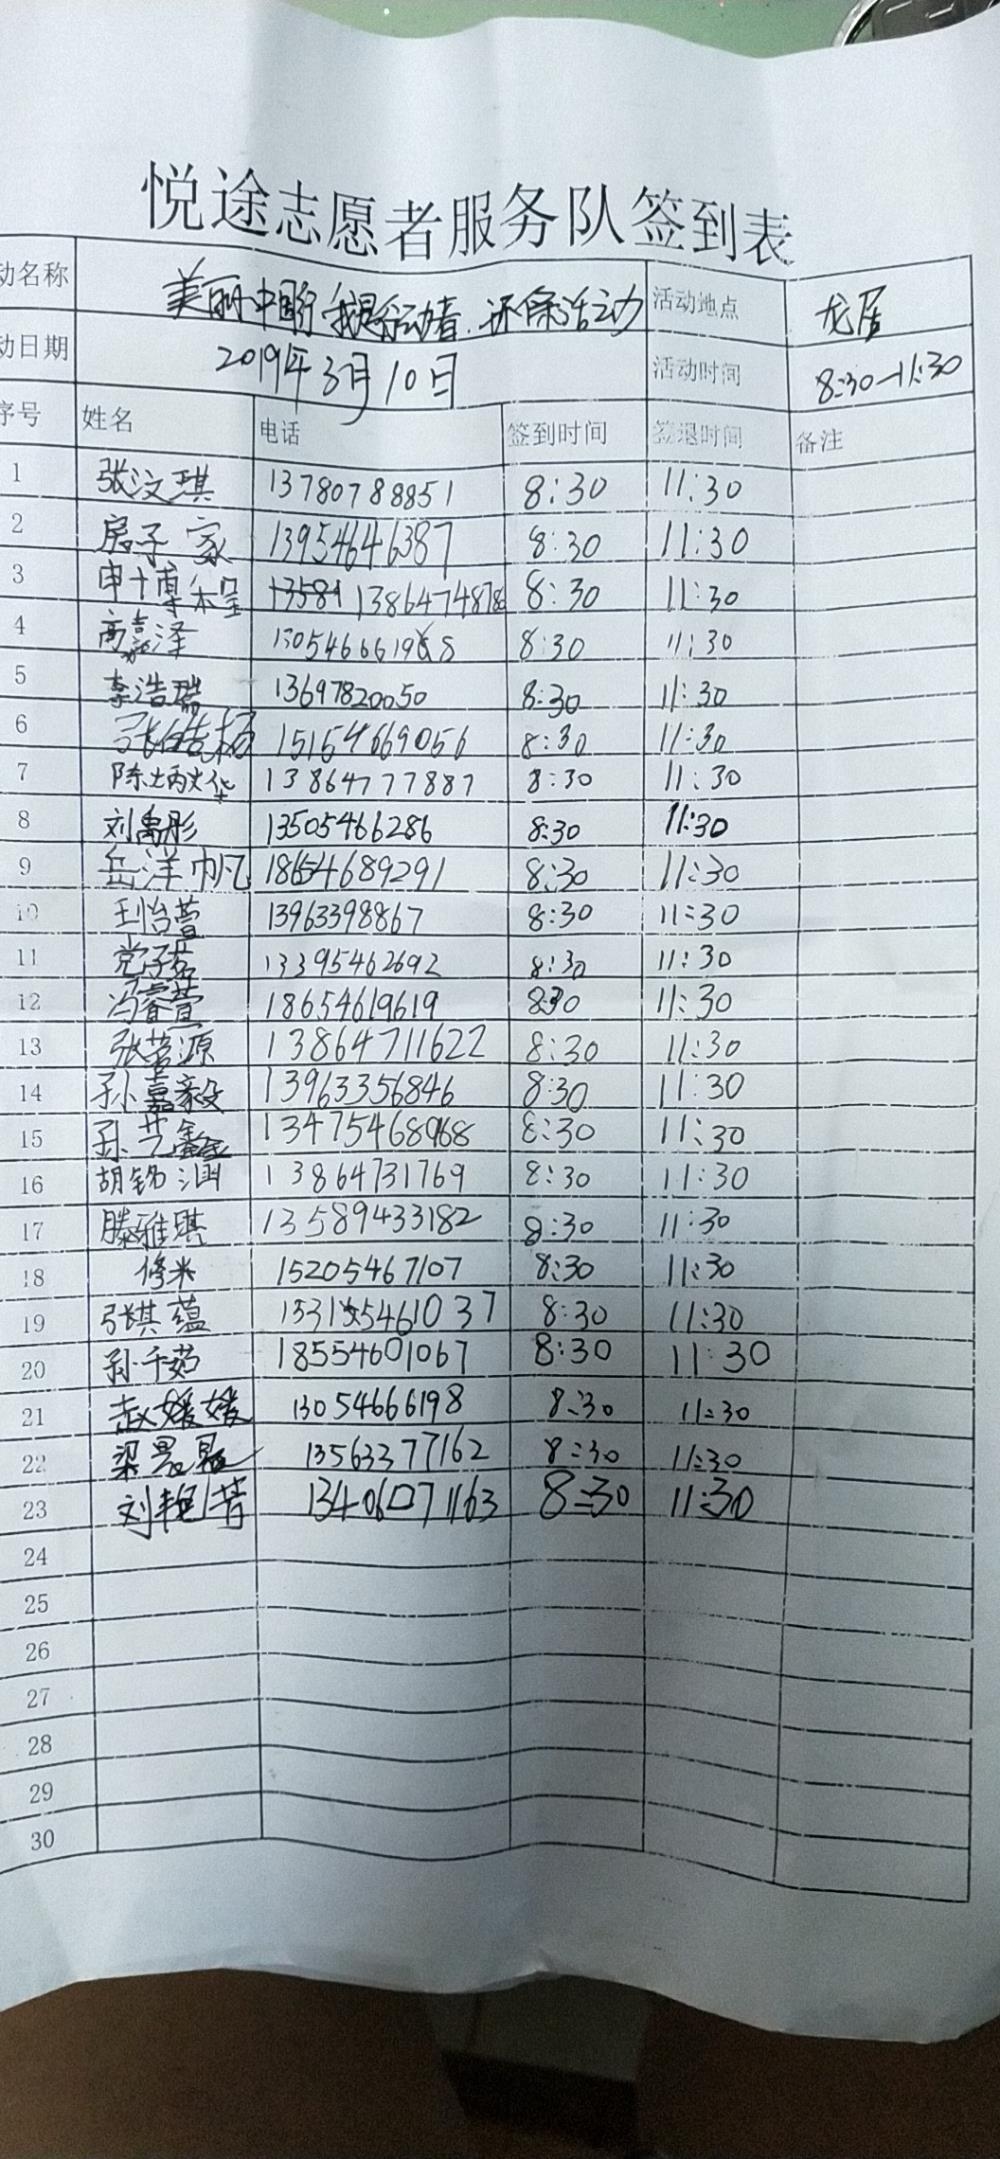 悦途志愿者服务队签到表
动名称 美丽中国行 我是行动者 环保活动 活动地点 龙居
动日期 2019年3月10日 活动时间 8:30-11:30
序号 姓名 电话 签到时间 签退时间 备注
1 张汶琪 13780788851 8:30 11:30
2 房子家 13954646387 8:30 11:30
3 申博 1386474878 8:30 11:30
4 高嘉泽 13054666198 8:30 11:30
5 李浩瑞 13697820050 8:30 11:30
6 张皓杨 15154669056 8:30 11:30
7 陈炳华 13864777887 8:30 11:30
8 刘禹彤 13505466286 8:30 11:30
9 岳洋帆 18654689291 8:30 11:30
10 王怡萱 13963398867 8:30 11:30
11 党子茗 13395462692 8:30 11:30
12 冯睿萱 18654619619 8:30 11:30
13 张营源 13864711622 8:30 11:30
14 孙嘉毅 13963356846 8:30 11:30
15 孙艺鑫 13475468968 8:30 11:30
16 胡铭涵 13864731769 8:30 11:30
17 滕雅琪 13589433182 8:30 11:30
18 修米 15205467107 8:30 11:30
19 张祺蕴 15315461037 8:30 11:30
20 孙千茹 18554601067 8:30 11:30
21 赵媛媛 13054666198 8:30 11:30
22 梁晟 13563377162 8:30 11:30
23 刘艳菁 13406071163 8:30 11:30
24
25
26
27
28
29
30